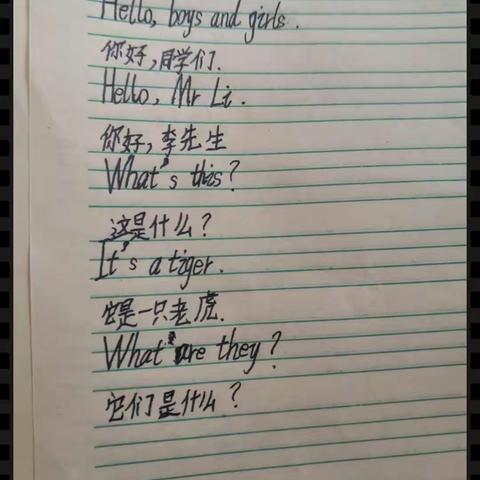 Hello, boys and girls.
你好,同学们.
Hello, Mr Li.
你好,李先生
What's this?
这是什么?
It's a tiger.
它是一只老虎.
What are they?
它们是什么?